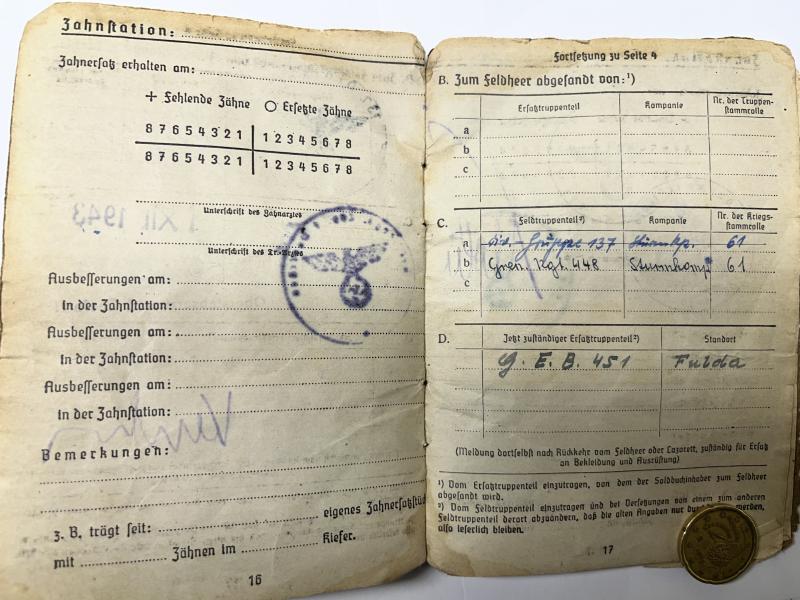 Zahnstation:
Zahnersatz erhalten am:
+ Fehlende Zähne O Ersetzte Zähne
8 7 6 5 4 3 2 1 1 2 3 4 5 6 7 8
8 7 6 5 4 3 2 1 1 2 3 4 5 6 7 8
Unterschrift des Zahnarztes
Unterschrift des Tr.-Arztes
Ausbesserungen am:
in der Zahnstation:
Ausbesserungen am:
in der Zahnstation:
Ausbesserungen am:
in der Zahnstation:
Bemerkungen:
z. B. trägt seit: eigenes Zahnersatzstück
mit Zähnen im Kiefer.
16
Fortsetzung zu Seite 4
B. Zum Feldheer abgesandt von:¹)
Ersatztruppenteil Kompanie Nr. der Truppen-
stammrolle
a
b
c
C. Feldtruppenteil²) Kompanie Nr. der Kriegs-
stammrolle
a Div.-Gruppe 137 Sturmkp. 61
b Gren. Rgt. 448 Sturmkomp 61
c
D. Jetzt zuständiger Ersatztruppenteil²) Standort
G. E. B. 451 Fulda
(Meldung dortselbst nach Rückkehr vom Feldheer oder Lazarett, zuständig für Ersatz
an Bekleidung und Ausrüstung)
¹) Vom Ersatztruppenteil einzutragen, von dem der Soldbuchinhaber zum Feldheer
abgesandt wird.
²) Vom Feldtruppenteil einzutragen und bei Versetzungen von einem zum anderen
Feldtruppenteil derart abzuändern, daß die alten Angaben nur werden,
also leserlich bleiben.
17